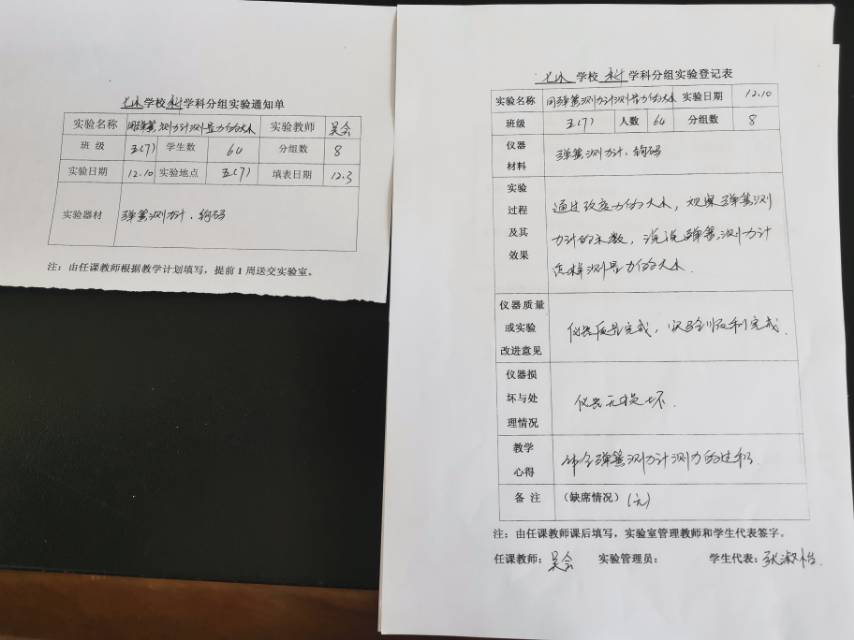 学校 科 学科分组实验通知单
实验名称 用弹簧测力计测量力的大小 实验教师 吴会
班 级 五(7) 学生数 64 分组数 8
实验日期 12.10 实验地点 五(7) 填表日期 12.3
实验器材 弹簧测力计、钩码
注：由任课教师根据教学计划填写，提前 1 周送交实验室。
学校 科 学科分组实验登记表
实验名称 用弹簧测力计测量力的大小 实验日期 12.10
班级 五(7) 人数 64 分组数 8
仪器
材料
弹簧测力计、钩码
实验
过程
及其
效果
通过改变力的大小，观察弹簧测
力计的示数，说说弹簧测力计
怎样测量力的大小
仪器质量
或实验
改进意见
仪器质量完成，实验顺利完成.
仪器损
坏与处
理情况
仪器无损坏.
教学
心得
弹簧测力计测力的
备 注 （缺席情况）(无)
注：由任课教师课后填写，实验室管理教师和学生代表签字。
任课教师：吴会 实验管理员： 学生代表：张淑怡